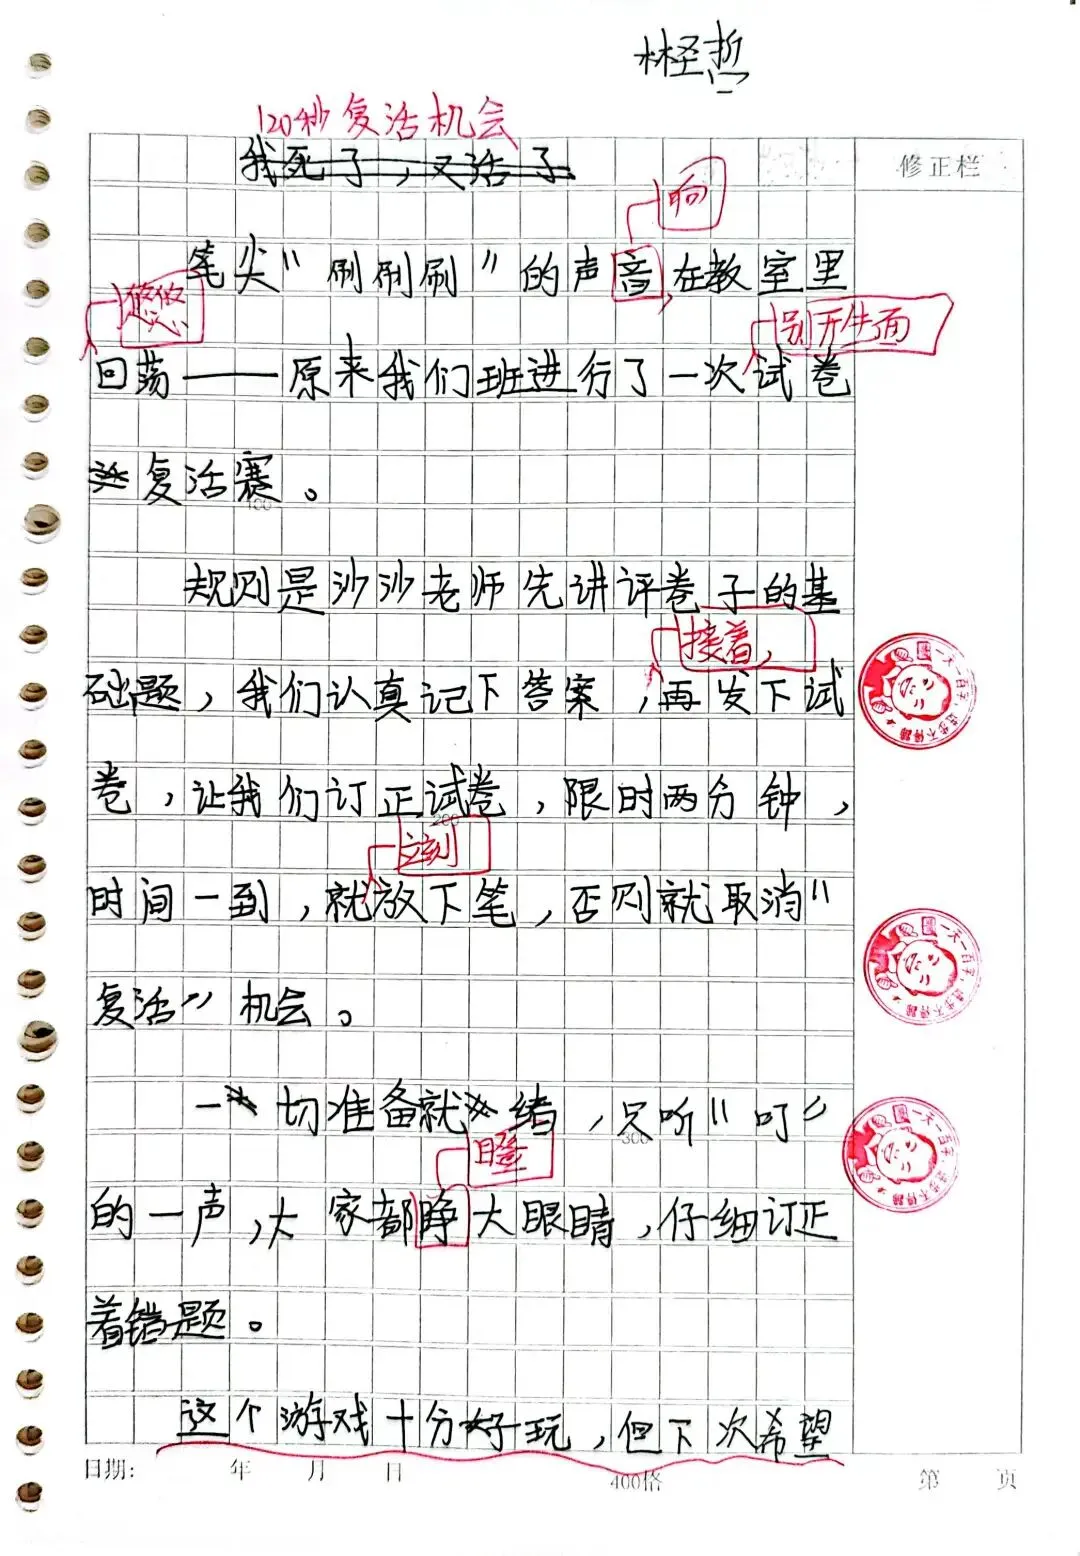 林圣哲
120秒复活机会
我死了，又活了
修正栏
响
笔尖“唰唰唰”的声音在教室里
悠悠
别开生面
回荡——原来我们班进行了一次试卷
复活赛。
100
规则是沙沙老师先讲评卷子的基
接着，
础题，我们认真记下答案，再发下试
卷，让我们订正试卷，限时两分钟，
200
立刻
时间一到，就放下笔，否则就取消“
复活”机会。
一切准备就绪，只听“叮”
300
瞪
的一声，大家都睁大眼睛，仔细订正
着错题。
这个游戏十分好玩，但下次希望
日期： 年 月 日 400格 第 页